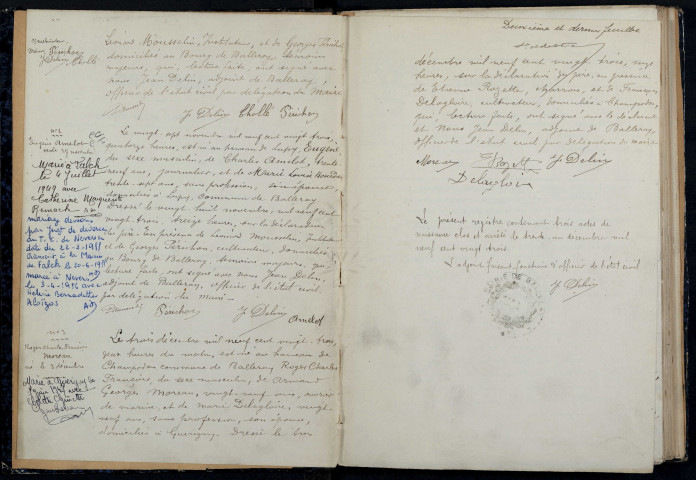 Léonie Mousselin, Institutrice, et de Georges
domiciliés au Bourg de Balleray témoins
majeurs, qui, lecture faite ont signé avec
nous Jean Delin, adjoint de Balleray,
officier de l'état civil par délégation du Maire
J Delin Chollé Péuchon
N° 2
Eugène Amelot
né le 27 novembre
Marié à Falck
le 4 Juillet
1949 avec
Catherine Marguerite
Remark
mariage dissous
par Jugt de divorce
du T. C. de Nevers
date du 22-2-1955
transcrit à la Mairie
de Falck le 20-6-1955
marié à Nevers
le 3-4-1956 avec
Hélène Bernadette
Le vingt sept novembre mil neuf cent vingt trois,
quatorze heures, est né au hameau de Lupy, Eugène
du sexe masculin, de Charles Amelot, trente
neuf ans, journalier, et de Marie Louise Bourdeau
trente sept ans, sans profession, son épouse,
domiciliés à Lupy, commune de Balleray.
Dressé le vingt huit novembre, mil neuf cent
vingt trois, treize heures, sur la déclaration
du père. En présence de Léonie Mousselin, Institutrice
et de Georges Péuchon, cultivateur, domiciliés
au Bourg de Balleray, témoins majeurs, qui,
lecture faite, ont signé avec nous Jean Delin,
adjoint de Balleray, officier de l'état civil
par délégation du Maire
Péuchon J Delin
Amelot
N° 3
Roger Charles François
Moreau
né le 3 décembre
Marié à Guérigny le
Le trois décembre mil neuf cent vingt trois,
deux heures du matin, est né au hameau de
commune de Balleray Roger Charles
François, du sexe masculin, de Armand
Georges Moreau, vingt neuf ans, ouvrier
de marine, et de Marie Delagloire, vingt
neuf ans, sans profession, son épouse,
domiciliés à Guérigny. Dressé le trois
Deuxième et dernier feuillet
décembre mil neuf cent vingt trois, onze
heures, sur la déclaration du père, en présence
de Etienne Rozette, charron, et de François
Delagloire, cultivateur, domiciliés à
qui, lecture faite, ont signé avec le déclarant
et Nous Jean Delin, adjoint de Balleray,
officier de l'état civil par délégation du maire
Moreau J Delin
Delagloire
Le présent registre contenant trois actes de
naissance clos et arrêté le trente un décembre mil
neuf cent vingt trois.
L'adjoint faisant fonctions d'officier de l'état civil
J Delin